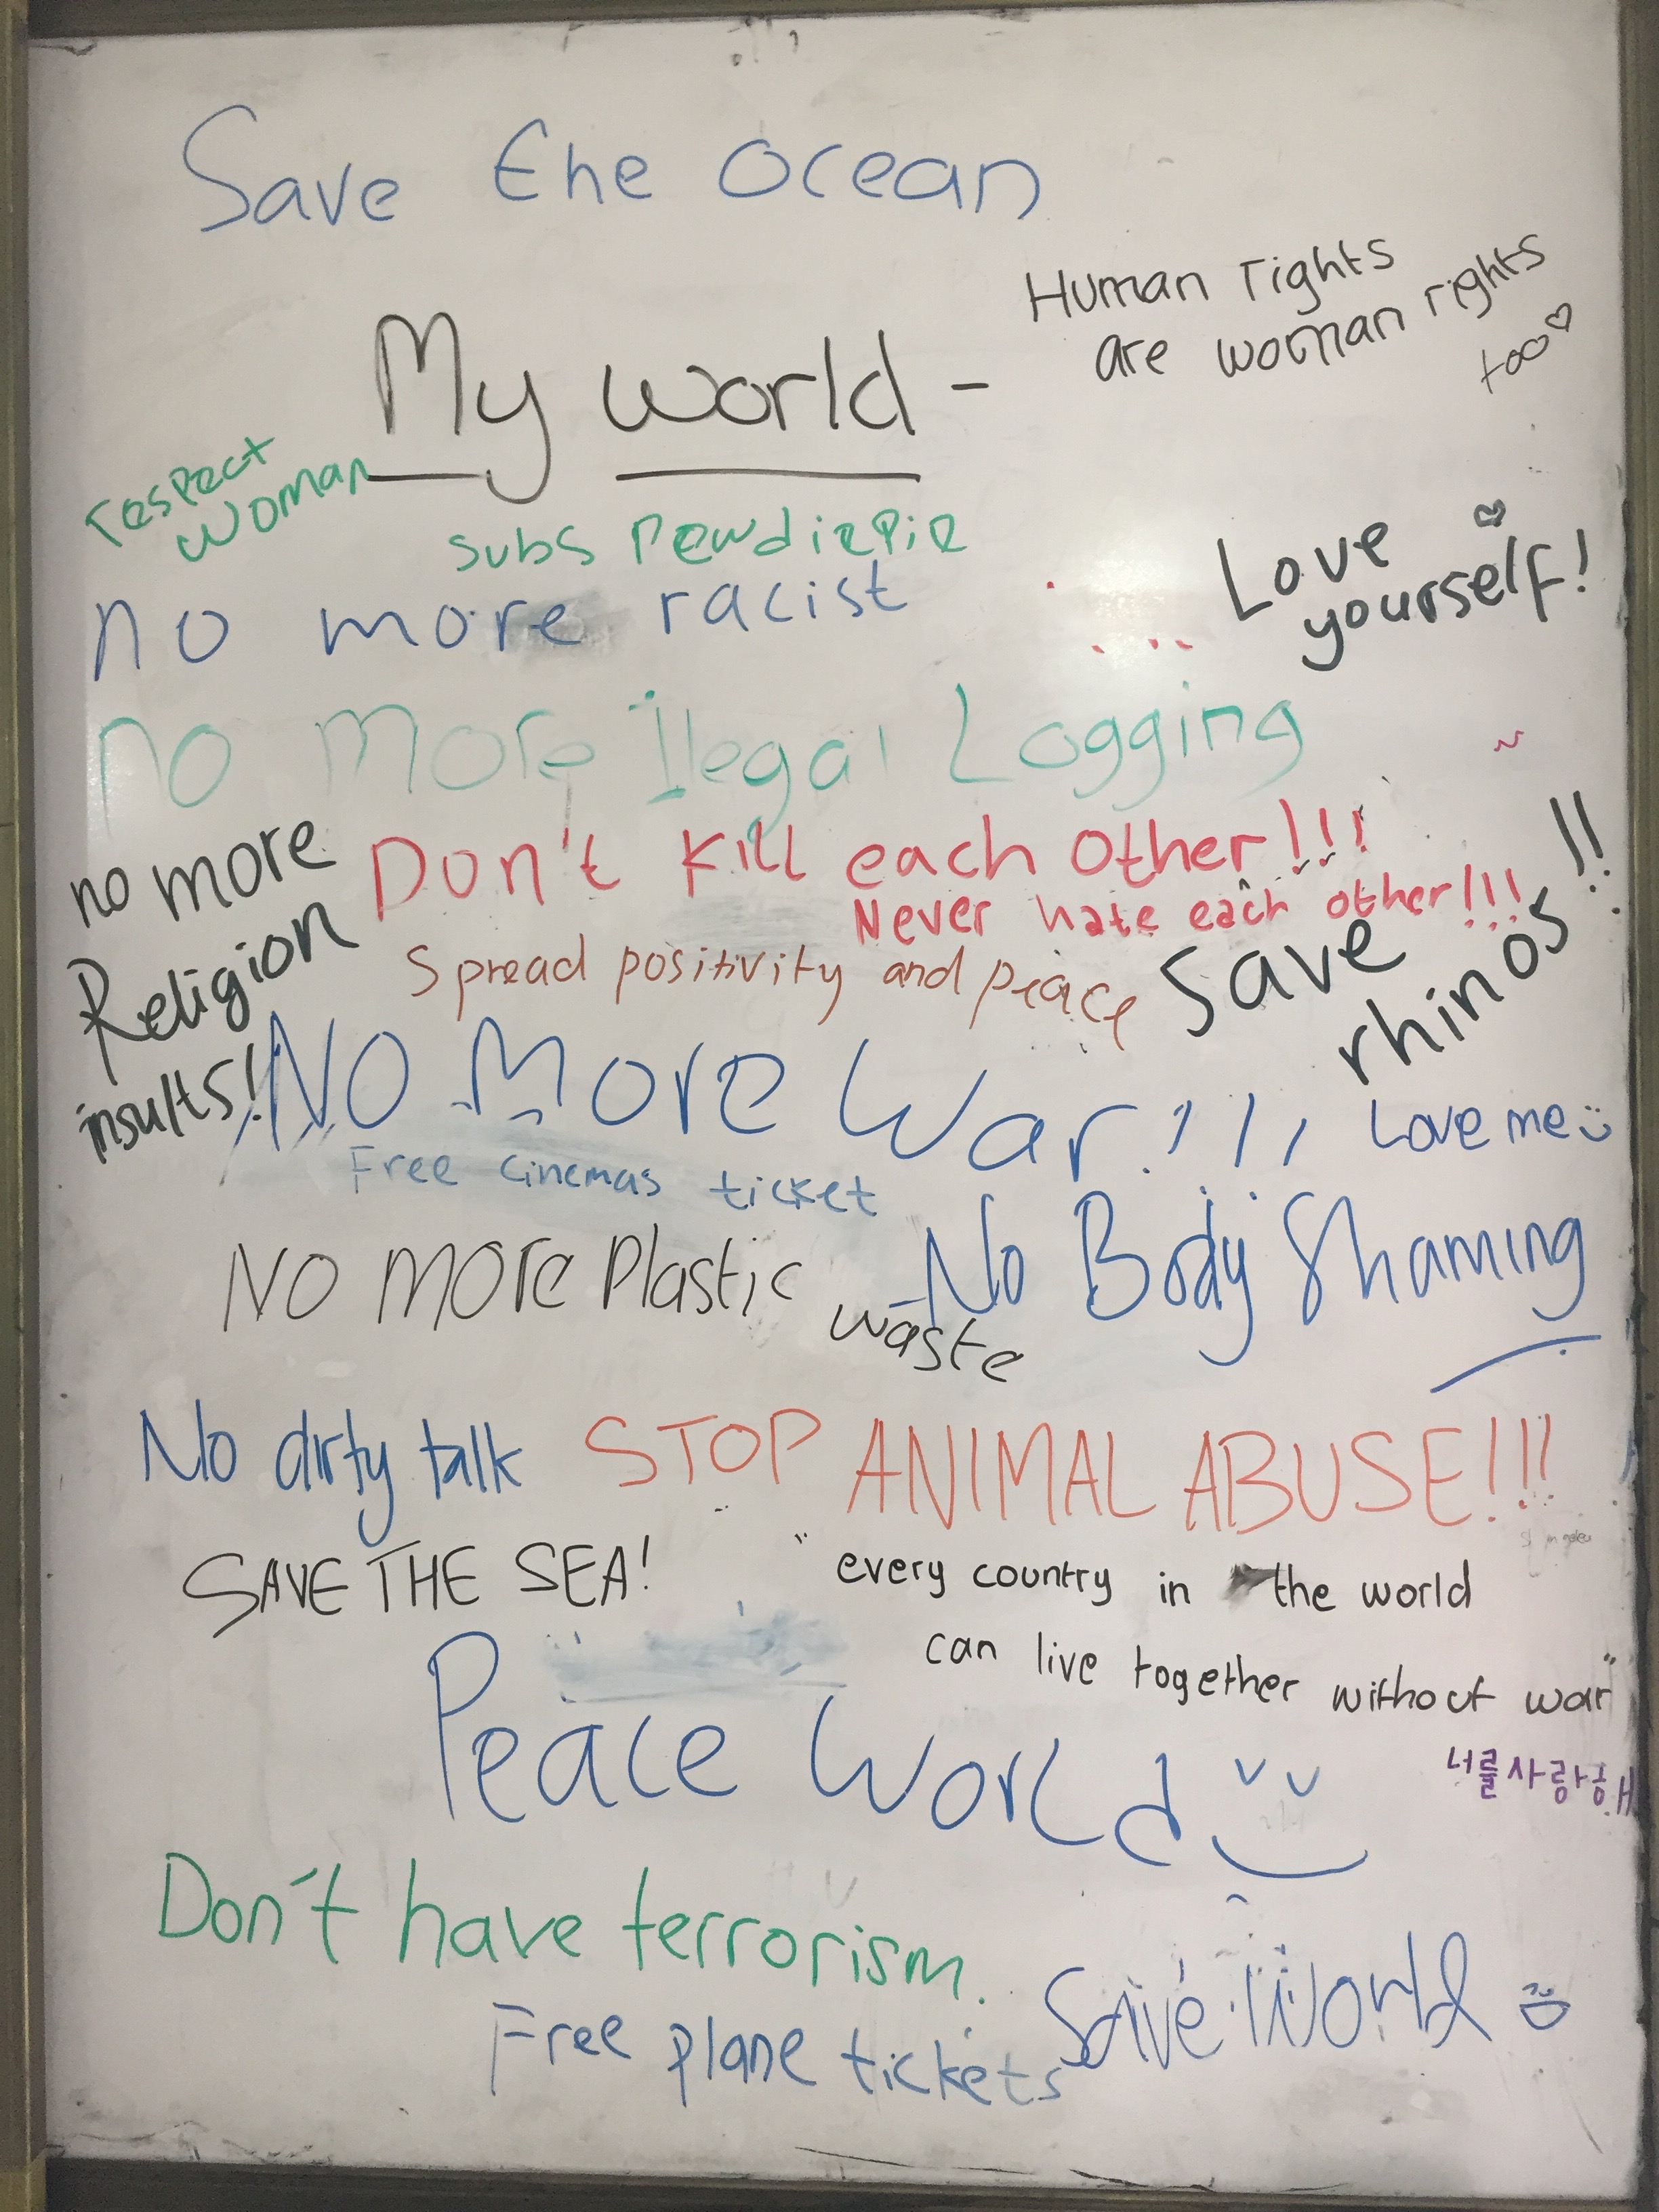 Save the ocean
Human rights
are woman rights
too
My world -
respect
woman
subs Pewdiepie
Love
yourself!
no more racist
no More Ilegal Logging
no more
Religion
insults!
Don't Kill each Other!!!
Never hate each other!!!
Spread positivity and peace
Save
rhinos!!
NO More War!!!
Love me
Free cinemas ticket
NO MORE Plastic
waste
No Body Shaming
No dirty talk
STOP ANIMAL ABUSE!!!
SAVE THE SEA!
"every country in the world
can live together without war"
Peace World
너를사랑해
Don't have terrorism.
Save World
Free plane tickets